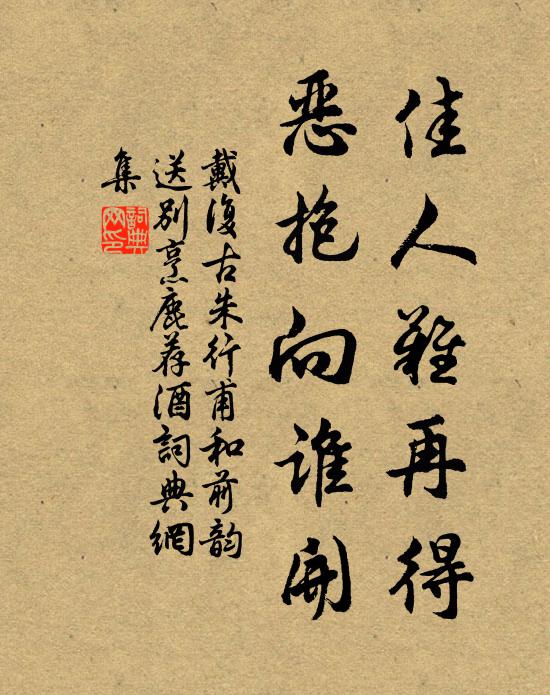 佳人难再得
恶抱向谁开
戴復古朱行甫和前韵
送别烹鹿荐酒詞典網
集
詞典
网印